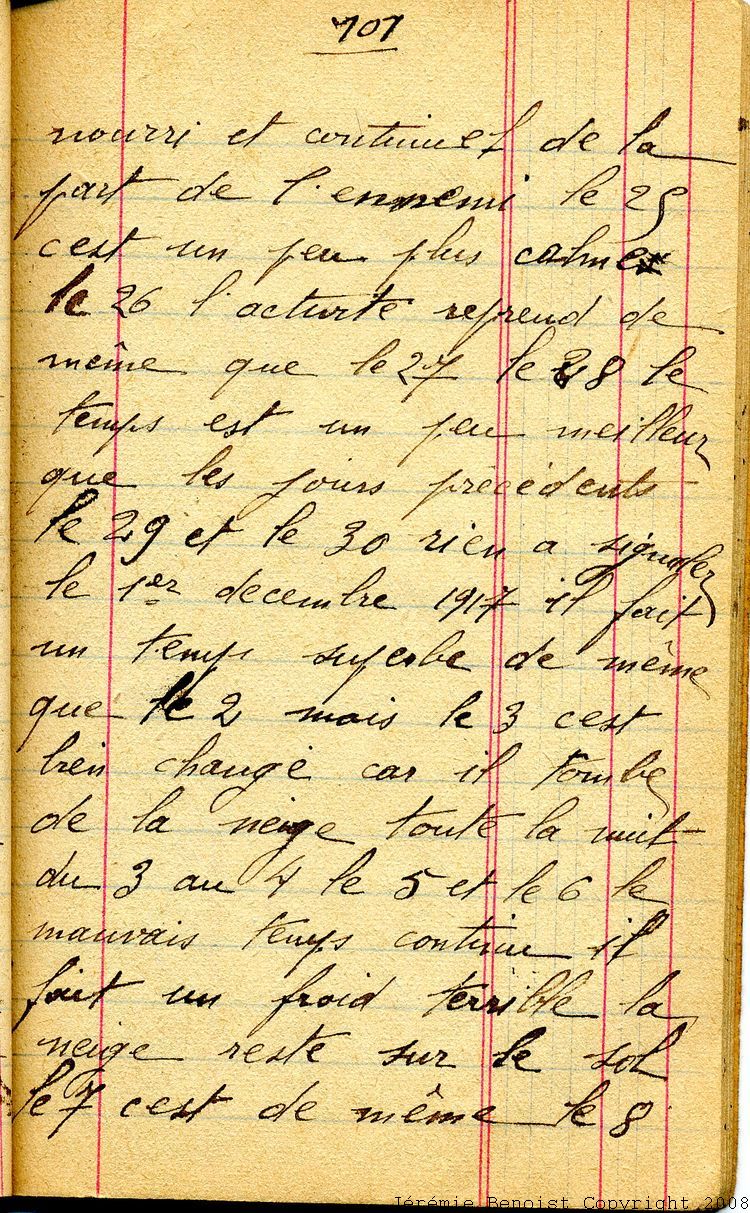 101
nourri et continuel de la
part de l'ennemi le 25
cest un peu plus calme
le 26 l'activité reprend de
même que le 27 le 28 le
temps est un peu meilleur
que les jours précédents
le 29 et le 30 rien a signaler
le 1er decembre 1917 il fait
un temps superbe de même
que le 2 mais le 3 cest
bien changé car il tombe
de la neige toute la nuit
du 3 au 4 le 5 et le 6 le
mauvais temps continu il
fait un froid terrible la
neige reste sur le sol
le 7 cest de même le 8
Jérémie Benoist Copyright 2008